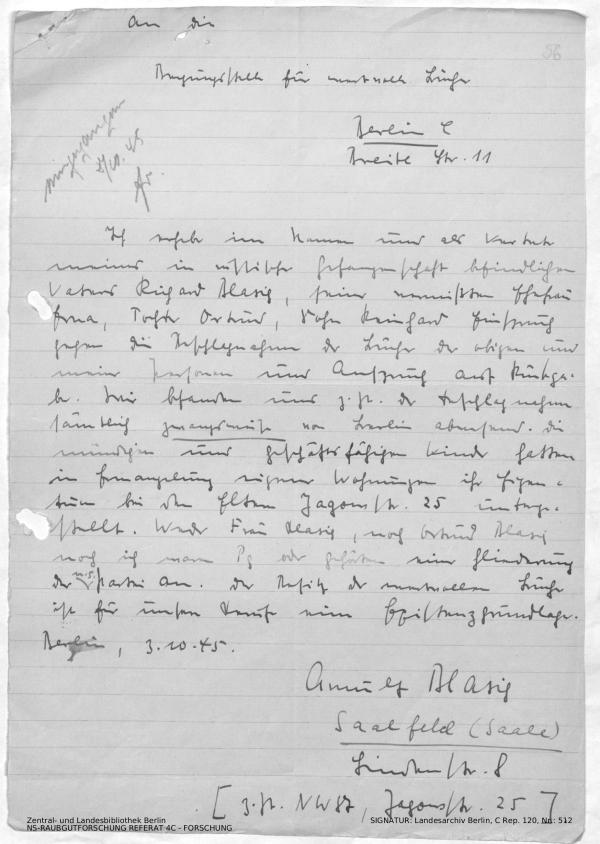 An die
56
Bergungsstelle für wertvolle Bücher
Berlin C
Breite Str. 11
eingegangen
10. 45
Ich erhebe im Namen und als Vertreter
meines in russischer Gefangenschaft befindlichen
Vaters Richard Blasig, seiner vermissten Ehefrau
Erna, Tochter Ortrud, Sohn Reinhard Einspruch
gegen die Beschlagnahme der Bücher der obigen und
meiner Personen und Anspruch auf Rückga-
be. Wir befanden uns z. Zt. der Beschlagnahme
sämtlich zwangsweise von Berlin abwesend. Die
mündigen und geschäftsfähigen Kinder hatten
in Ermangelung eigener Wohnungen ihr Eigen-
tum bei den Eltern Jagowstr. 25 unterge-
stellt. Weder Frau Blasig, noch Ortrud Blasig
noch ich waren Pg oder gehörten einer Gliederung
der n.s. Partei an. Der Besitz der wertvollen Bücher
ist für unseren Beruf eine Existenzgrundlage.
Berlin, 3.10.45.
Arnulf Blasig
Saalfeld (Saale)
Lindenstr. 8
[z. Zt. NW 87, Jagowstr. 25]
Zentral- und Landesbibliothek Berlin
NS-RAUBGUTFORSCHUNG REFERAT 4C - FORSCHUNG
SIGNATUR: Landesarchiv Berlin, C Rep. 120, Nr.: 512